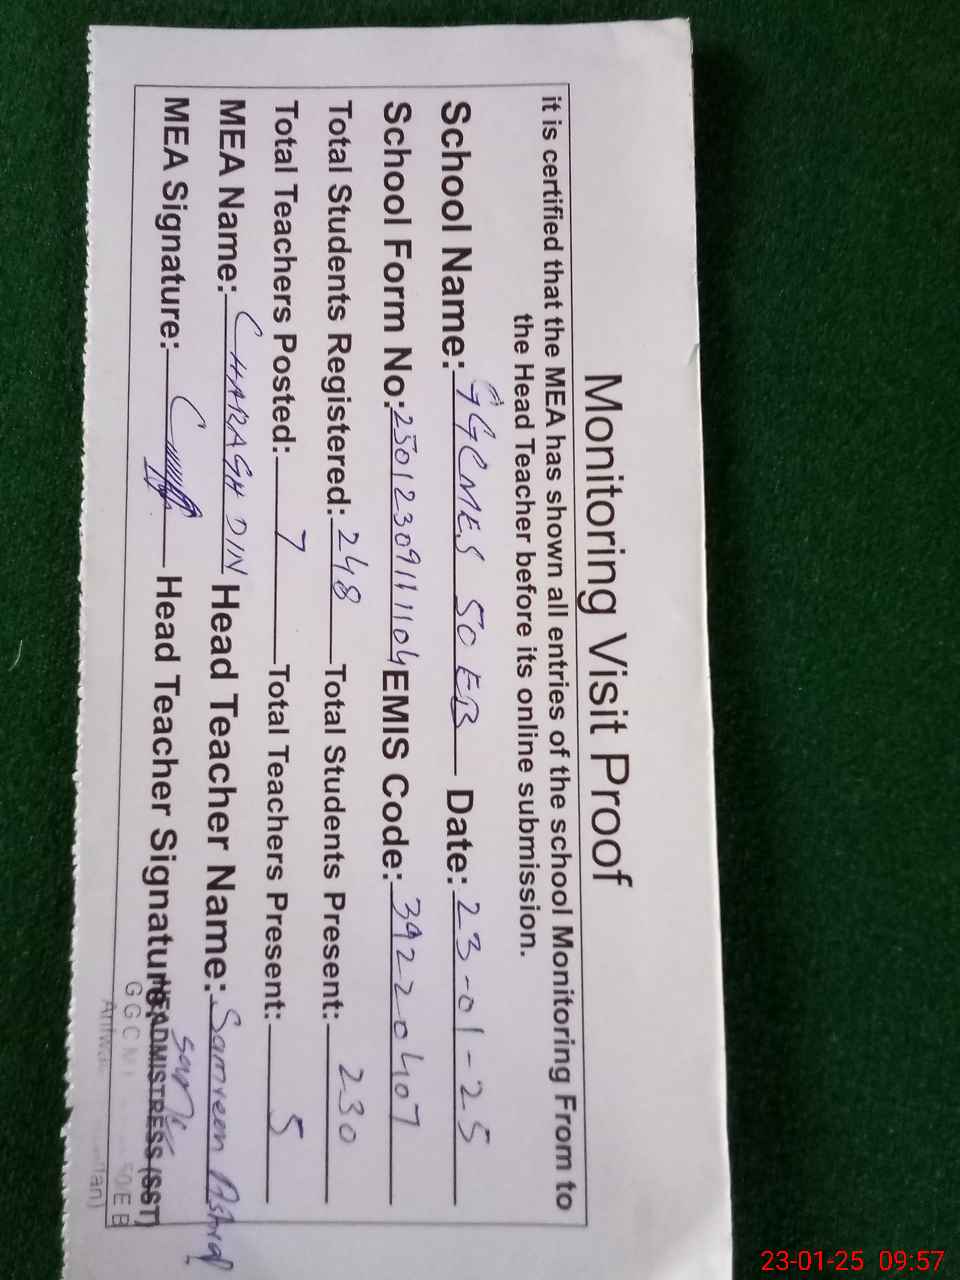 Monitoring Visit Proof
it is certified that the MEA has shown all entries of the school Monitoring From to
the Head Teacher before its online submission.
School Name: GGCMES 50 EB Date: 23-01-25
School Form No: 2501230911104 EMIS Code: 39220407
Total Students Registered: 248 Total Students Present: 230
Total Teachers Posted: 7 Total Teachers Present: 5
MEA Name: CHARAGH DIN Head Teacher Name: Samreen Ashraf
MEA Signature: Head Teacher Signature:
HEADMISTRESS (SST)
GGCM 50/EB
23-01-25 09:57